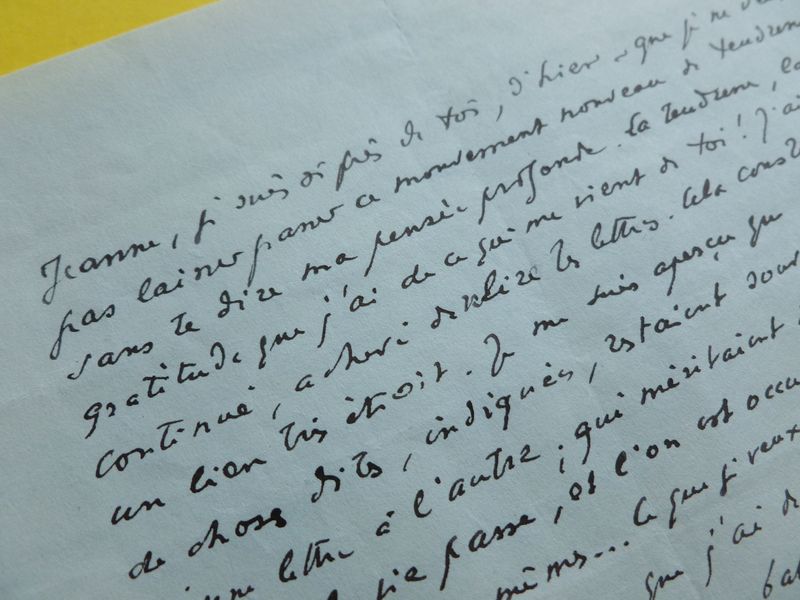 Jeanne, je suis si près de toi, d'hier - que je ne
pas laisser passer ce mouvement nouveau de tendresse
sans te dire ma pensée profonde. la tendresse, la
gratitude que j'ai de ce qui me vient de toi! J'ai
continué, achevé de relire tes lettres. Cela
un lien très étroit. Je me suis aperçu que
de choses dites, indiquées, restaient
une lettre à l'autre, qui méritaient
vie passe, et l'on est
mêmes... ce que je veux
que j'ai